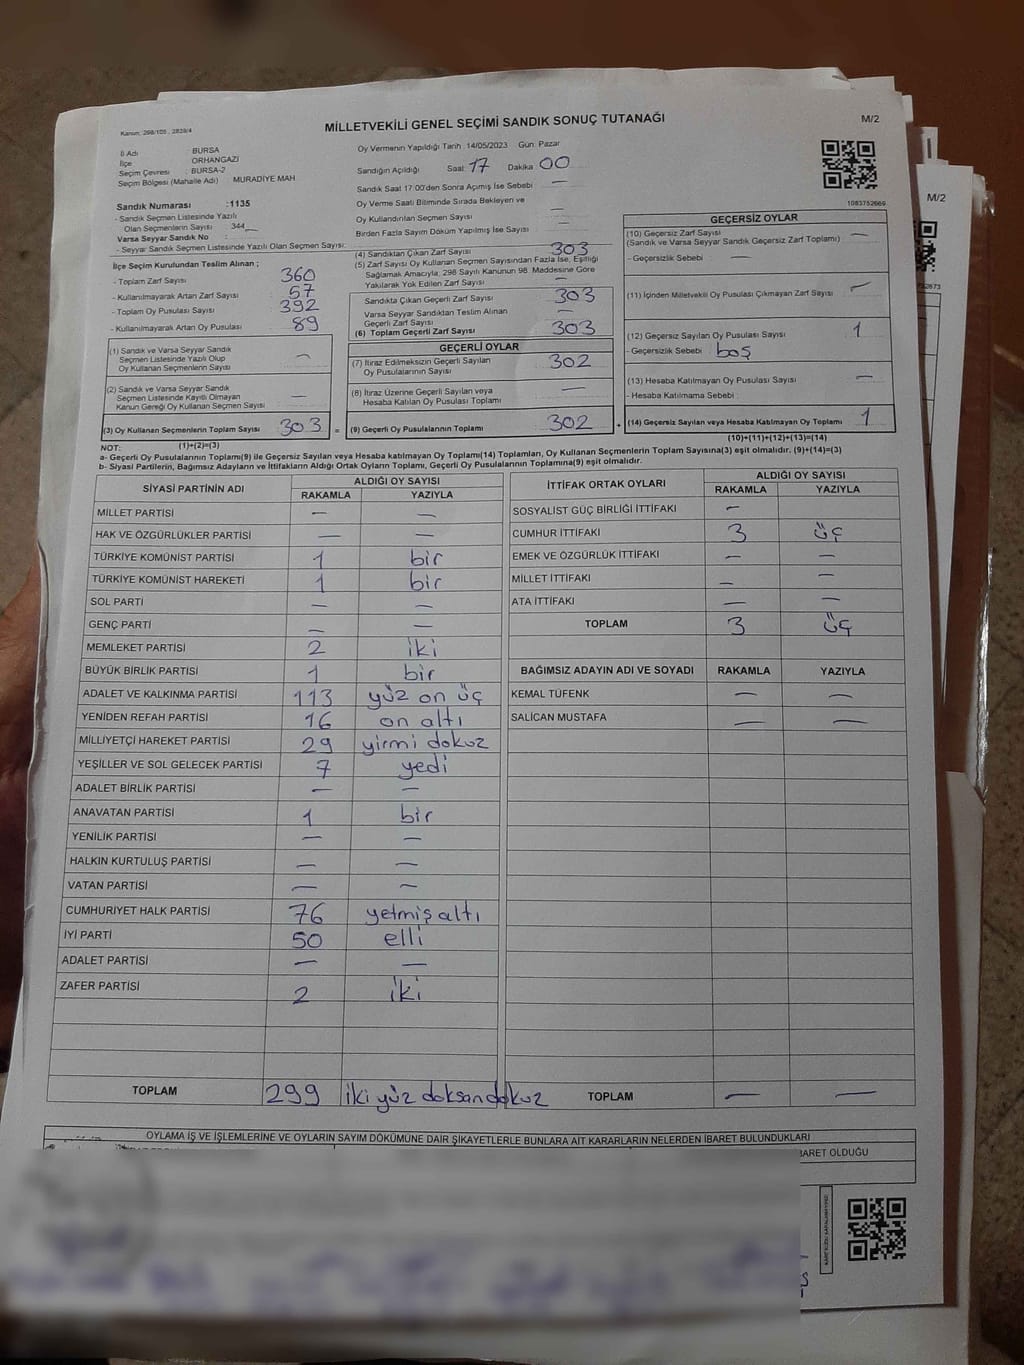 Kanun: 298/105 , 2839/4
MİLLETVEKİLİ GENEL SEÇİMİ SANDIK SONUÇ TUTANAĞI
M/2
İl Adı : BURSA
İlçe : ORHANGAZİ
Seçim Çevresi : BURSA-2
Seçim Bölgesi (Mahalle Adı) MURADİYE MAH
Oy Vermenin Yapıldığı Tarih :14/05/2023 Gün: Pazar
Sandığın Açıldığı Saat 17 Dakika 00
Sandık Saat 17 00'den Sonra Açılmış İse Sebebi —
Oy Verme Saati Bitiminde Sırada Bekleyen ve
Oy Kullandırılan Seçmen Sayısı —
Birden Fazla Sayım Döküm Yapılmış İse Sayısı —
1083752669
Sandık Numarası :1135
- Sandık Seçmen Listesinde Yazılı
Olan Seçmenlerin Sayısı 344
Varsa Seyyar Sandık No :
- Seyyar Sandık Seçmen Listesinde Yazılı Olan Seçmen Sayısı:
İlçe Seçim Kurulundan Teslim Alınan ;
- Toplam Zarf Sayısı 360
- Kullanılmayarak Artan Zarf Sayısı 57
- Toplam Oy Pusulası 392
- Kullanılmayarak Artan Oy Pusulası 89
(1) Sandık ve Varsa Seyyar Sandık
Seçmen Listesinde Yazılı Olup
Oy Kullanan Seçmenlerin Sayısı —
(2) Sandık ve Varsa Seyyar Sandık
Seçmen Listesinde Kayıtlı Olmayan
Kanun Gereği Oy Kullanan Seçmen Sayısı —
(3) Oy Kullanan Seçmenlerin Toplam Sayısı 303 =
(1)+(2)=(3)
(4) Sandıktan Çıkan Zarf Sayısı 303
(5) Zarf Sayısı Oy Kullanan Seçmen Sayısından Fazla İse, Eşitliği
Sağlamak Amacıyla, 298 Sayılı Kanunun 98. Maddesine Göre
Yakılarak Yok Edilen Zarf Sayısı —
Sandıkta Çıkan Geçerli Zarf Sayısı 303
Varsa Seyyar Sandıktan Teslim Alınan
Geçerli Zarf Sayısı —
(6) Toplam Geçerli Zarf Sayısı 303
GEÇERLİ OYLAR
(7) İtiraz Edilmeksizin Geçerli Sayılan
Oy Pusulalarının Sayısı 302
(8) İtiraz Üzerine Geçerli Sayılan veya
Hesaba Katılan Oy Pusulası Toplamı —
(9) Geçerli Oy Pusulalarının Toplamı 302 +
GEÇERSİZ OYLAR
(10) Geçersiz Zarf Sayısı —
(Sandık ve Varsa Seyyar Sandık Geçersiz Zarf Toplamı)
- Geçersizlik Sebebi : —
(11) İçinden Milletvekili Oy Pusulası Çıkmayan Zarf Sayısı —
(12) Geçersiz Sayılan Oy Pusulası Sayısı 1
- Geçersizlik Sebebi : boş
(13) Hesaba Katılmayan Oy Pusulası Sayısı —
- Hesaba Katılmama Sebebi :
(14) Geçersiz Sayılan veya Hesaba Katılmayan Oy Toplamı 1
(10)+(11)+(12)+(13)=(14)
NOT:
a- Geçerli Oy Pusulaları Toplamı(9) ile Geçersiz Sayılan veya Hesaba katılmayan Oy Toplamı(14) Toplamları, Oy Kullanan Seçmenlerin Toplam Sayısına(3) eşit olmalıdır. (9)+(14)=(3)
b- Siyasi Partilerin, Bağımsız Adayların ve İttifakların Aldığı Ortak Oyların Toplamı, Geçerli Oy Pusulalarının Toplamına(9) eşit olmalıdır.
SİYASİ PARTİNİN ADI ALDIĞI OY SAYISI
RAKAMLA YAZIYLA
MİLLET PARTİSİ — —
HAK VE ÖZGÜRLÜKLER PARTİSİ — —
TÜRKİYE KOMÜNİST PARTİSİ 1 bir
TÜRKİYE KOMÜNİST HAREKETİ 1 bir
SOL PARTİ — —
GENÇ PARTİ — —
MEMLEKET PARTİSİ 2 iki
BÜYÜK BİRLİK PARTİSİ 1 bir
ADALET VE KALKINMA PARTİSİ 113 yüz on üç
YENİDEN REFAH PARTİSİ 16 on altı
MİLLİYETÇİ HAREKET PARTİSİ 29 yirmi dokuz
YEŞİLLER VE SOL GELECEK PARTİSİ 7 yedi
ADALET BİRLİK PARTİSİ — —
ANAVATAN PARTİSİ 1 bir
YENİLİK PARTİSİ — —
HALKIN KURTULUŞ PARTİSİ — —
VATAN PARTİSİ — —
CUMHURİYET HALK PARTİSİ 76 yetmiş altı
İYİ PARTİ 50 elli
ADALET PARTİSİ — —
ZAFER PARTİSİ 2 iki
TOPLAM 299 iki yüz doksan dokuz
İTTİFAK ORTAK OYLARI ALDIĞI OY SAYISI
RAKAMLA YAZIYLA
SOSYALİST GÜÇ BİRLİĞİ İTTİFAKI —
CUMHUR İTTİFAKI 3 üç
EMEK VE ÖZGÜRLÜK İTTİFAKI — —
MİLLET İTTİFAKI — —
ATA İTTİFAKI — —
TOPLAM 3 üç
BAĞIMSIZ ADAYIN ADI VE SOYADI RAKAMLA YAZIYLA
KEMAL TÜFENK — —
SALİCAN MUSTAFA — —
TOPLAM — —
OYLAMA İŞ VE İŞLEMLERİNE VE OYLARIN SAYIM DÖKÜMÜNE DAİR ŞİKAYETLERLE BUNLARA AİT KARARLARIN NELERDEN İBARET BULUNDUKLARI
BARET OLDUĞU
M/2